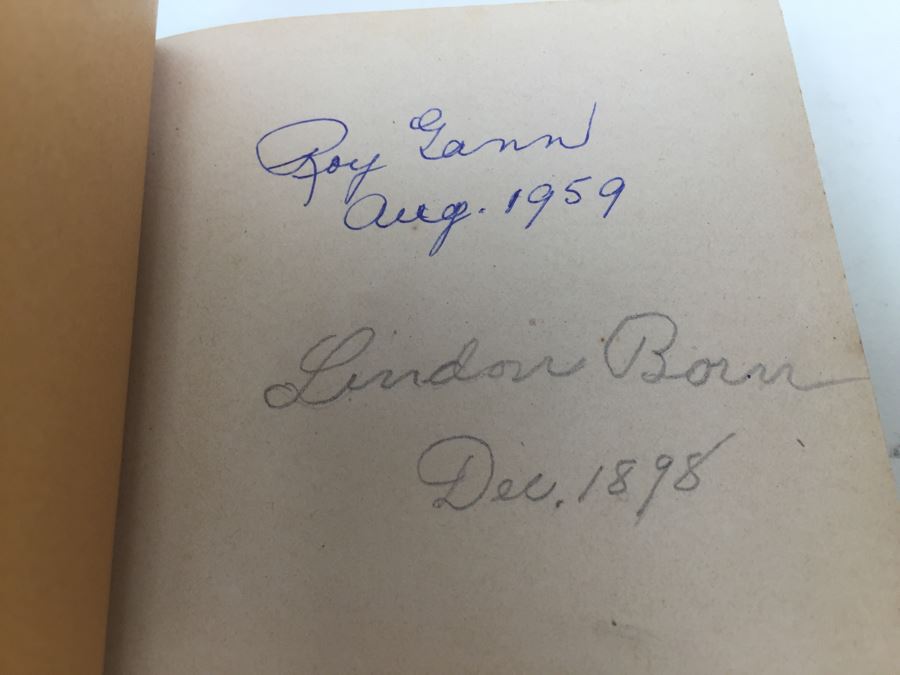 Roy Gann
Aug. 1959
Lindon Born
Dec. 1898